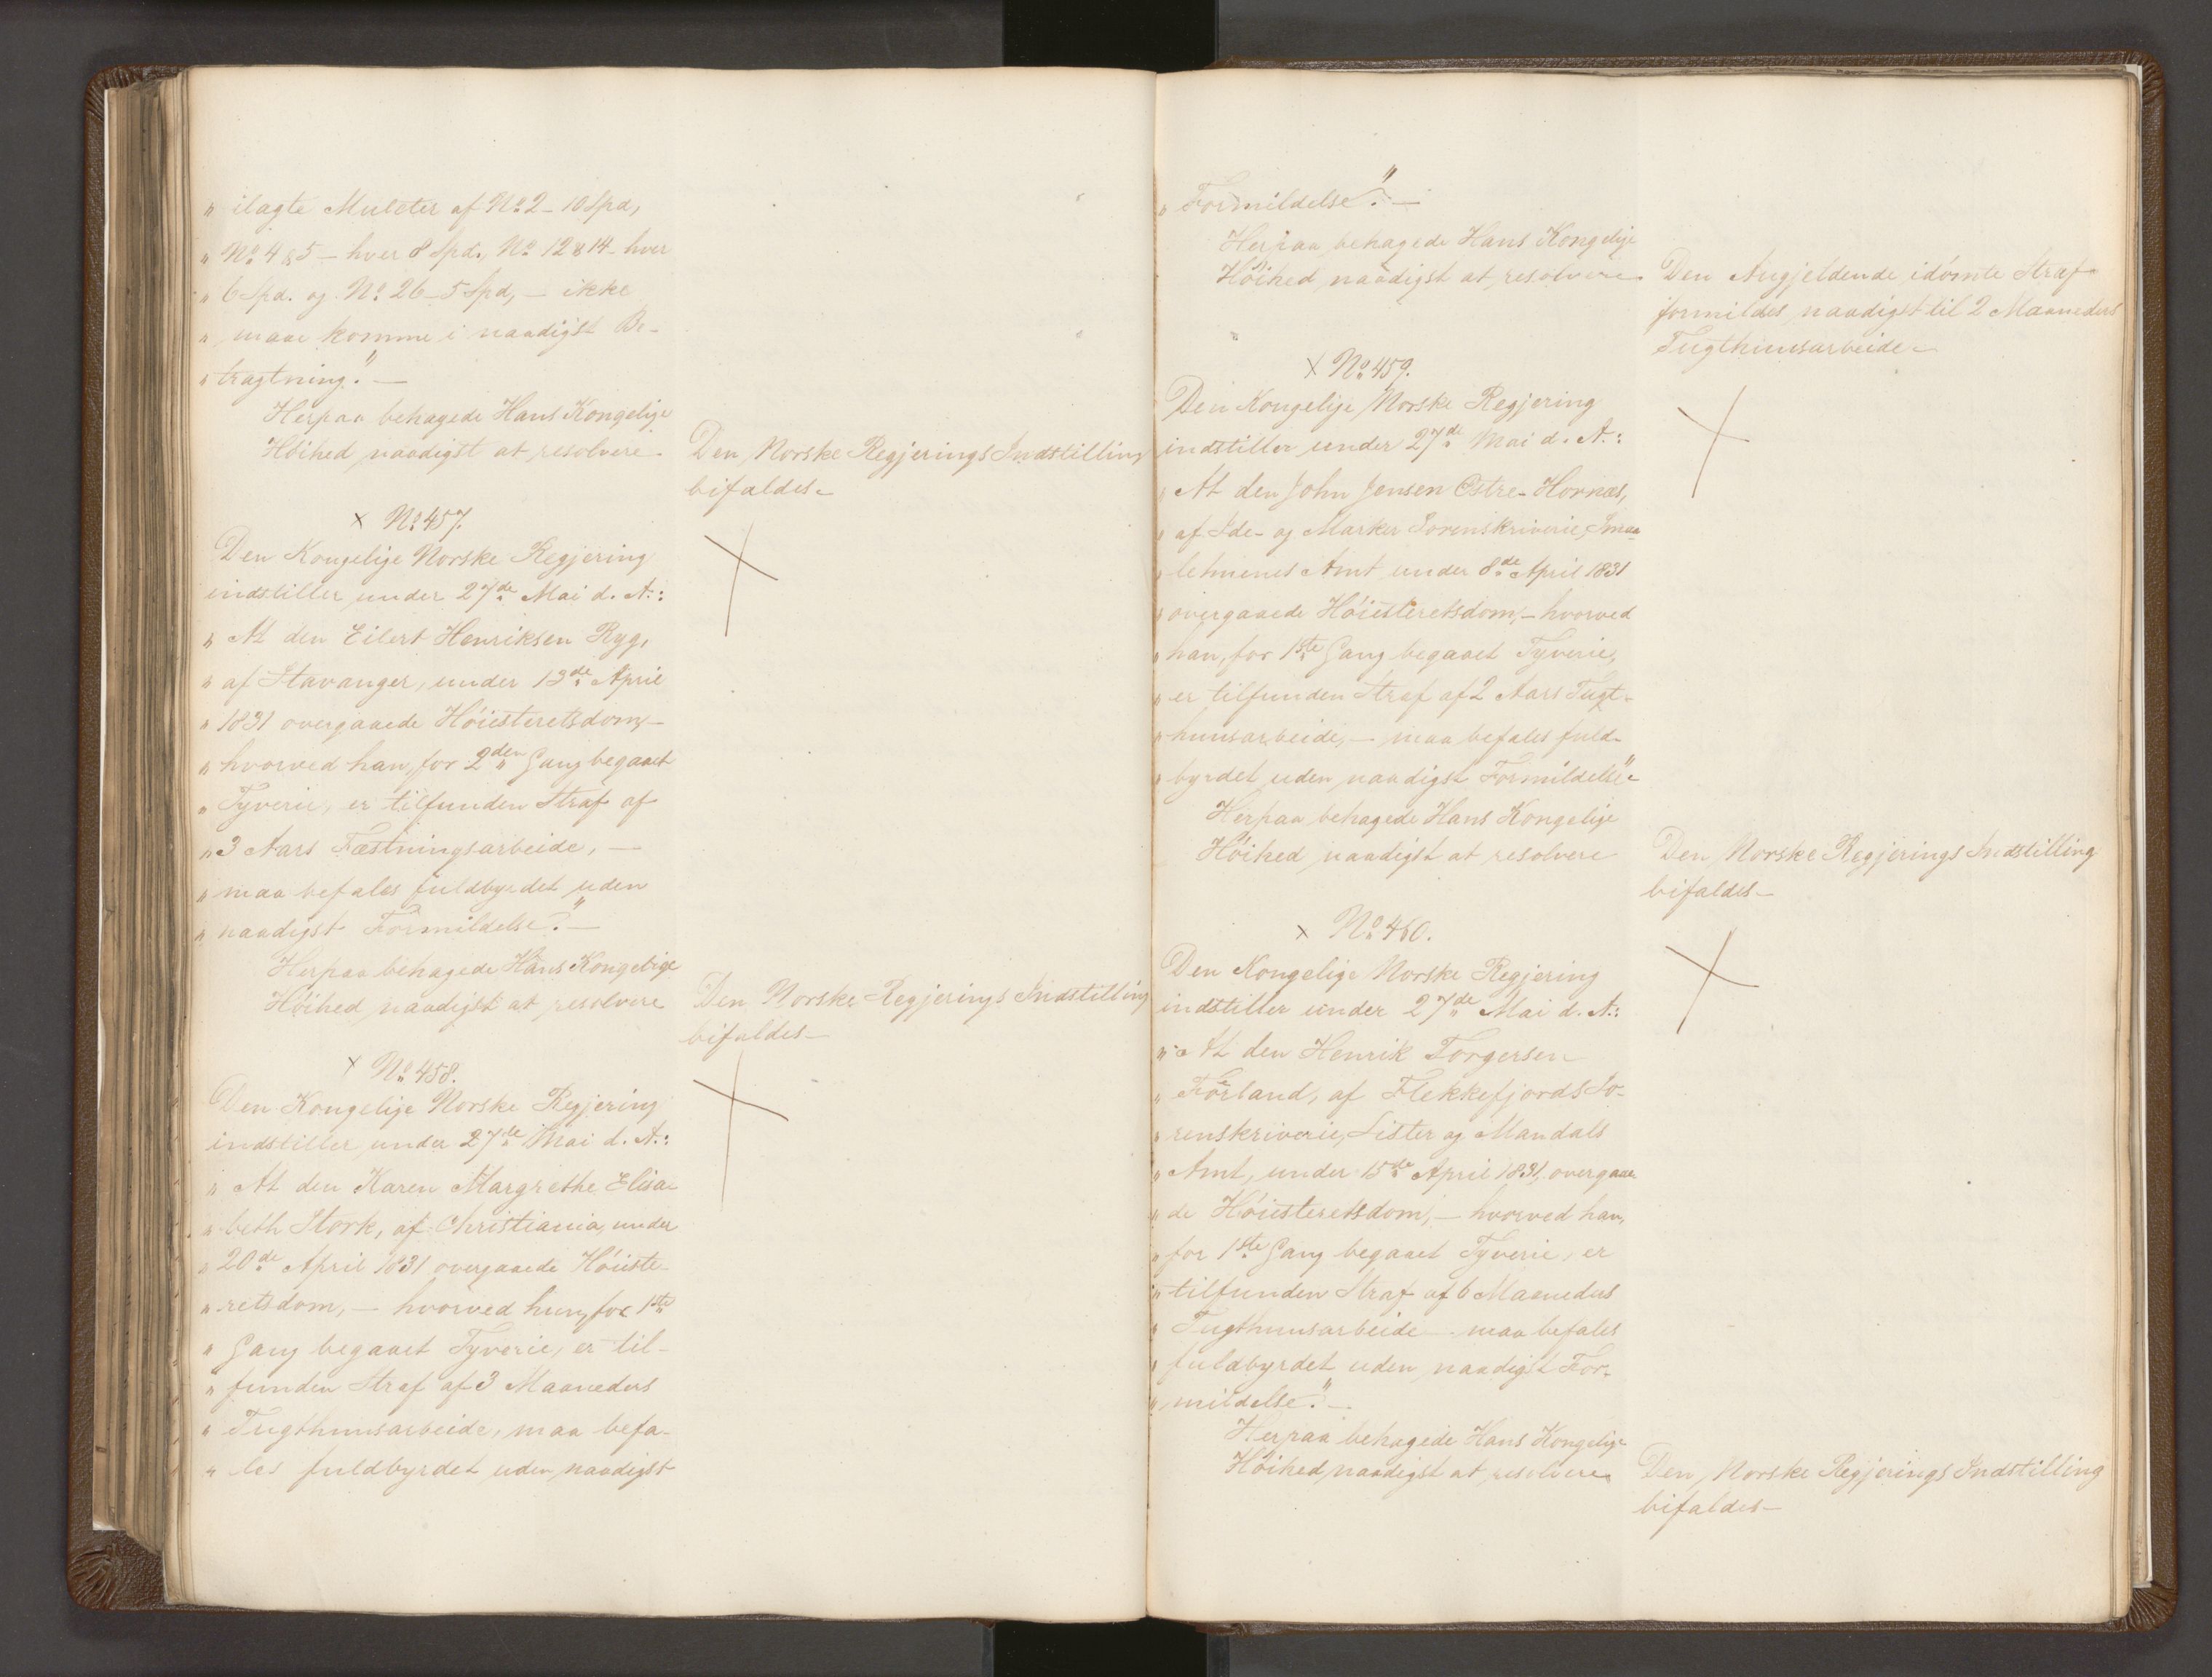 " ilagte Mulcter af No. 2 - 10 Spd,
" No. 4 & 5 - hver 8 Spd., No. 12 & 14 - hver
" 6 Spd. og No. 26 - 5 Spd, - ikke
" maae komme i naadigst Be-
" tragtning." -
Herpaa behagede Hans Kongelige
Höihed naadigst at resolvere.
Den Norske Regjerings Indstilling
bifaldes -
x No. 457.
Den Kongelige Norske Regjering
indstiller under 27de Mai d. A.:
" At den Eilert Henriksen Ryg,
" af Stavanger, under 13de April
" 1831 overgaaede Höiesteretsdom, -
" hvorved han, for 2den Gang begaaet
" Tyverie, er tilfunden Straf af
" 3 Aars Fæstningsarbeide, -
" maa befales fuldbyrdet uden
" naadigst Formildelse." -
Herpaa behagede Hans Kongelige
Höihed naadigst at resolvere
Den Norske Regjerings Indstilling
bifaldes -
x No. 458.
Den Kongelige Norske Regjering
indstiller under 27de Mai d. A.:
" At den Karen Margrethe Elisa-
" beth Stork, af Christiania, under
" 20de April 1831 overgaaede Höieste-
" retsdom, - hvorved hun, for 1ste
" Gang begaaet Tyverie, er til-
" funden Straf af 3 Maaneders
" Tugthuusarbeide, maa befa-
" les fuldbyrdet uden naadigst
" Formildelse." -
Herpaa behagede Hans Kongelige
Höihed naadigst at resolvere
Den Angjeldende idömte Straf
formildes naadigst til 2 Maaneders
Tugthuusarbeide -
x No. 459.
Den Kongelige Norske Regjering
indstiller under 27de Mai d. A.:
" At den John Jensen Östre-Hornæs,
" af Ide- og Marker Sorenskriverie, Smaa-
" lehnenes Amt under 8de April 1831
" overgaaede Höiesteretsdom, - hvorved
" han, for 1ste Gang begaaet Tyverie,
" er tilfunden Straf af 2 Aars Tugt-
" huusarbeide, - maa befales fuld-
" byrdet uden naadigst Formildelse" -
Herpaa behagede Hans Kongelige
Höihed naadigst at resolvere
Den Norske Regjerings Indstilling
bifaldes -
x No. 460.
Den Kongelige Norske Regjering
indstiller under 27de Mai d. A.:
" At den Henrik Torgersen
" Förland, af Flekkefjords So-
" renskriverie, Lister og Mandals
" Amt, under 15de April 1831, overgaae-
" de Höiesteretsdom, - hvorved han,
" for 1ste Gang begaaet Tyverie, er
" tilfunden Straf af 6 Maaneders
" Tugthuusarbeide - maa befales
" fuldbyrdet uden naadigst For-
" mildelse." -
Herpaa behagede Hans Kongelige
Höihed naadigst at resolvere
Den Norske Regjerings Indstilling
bifaldes -